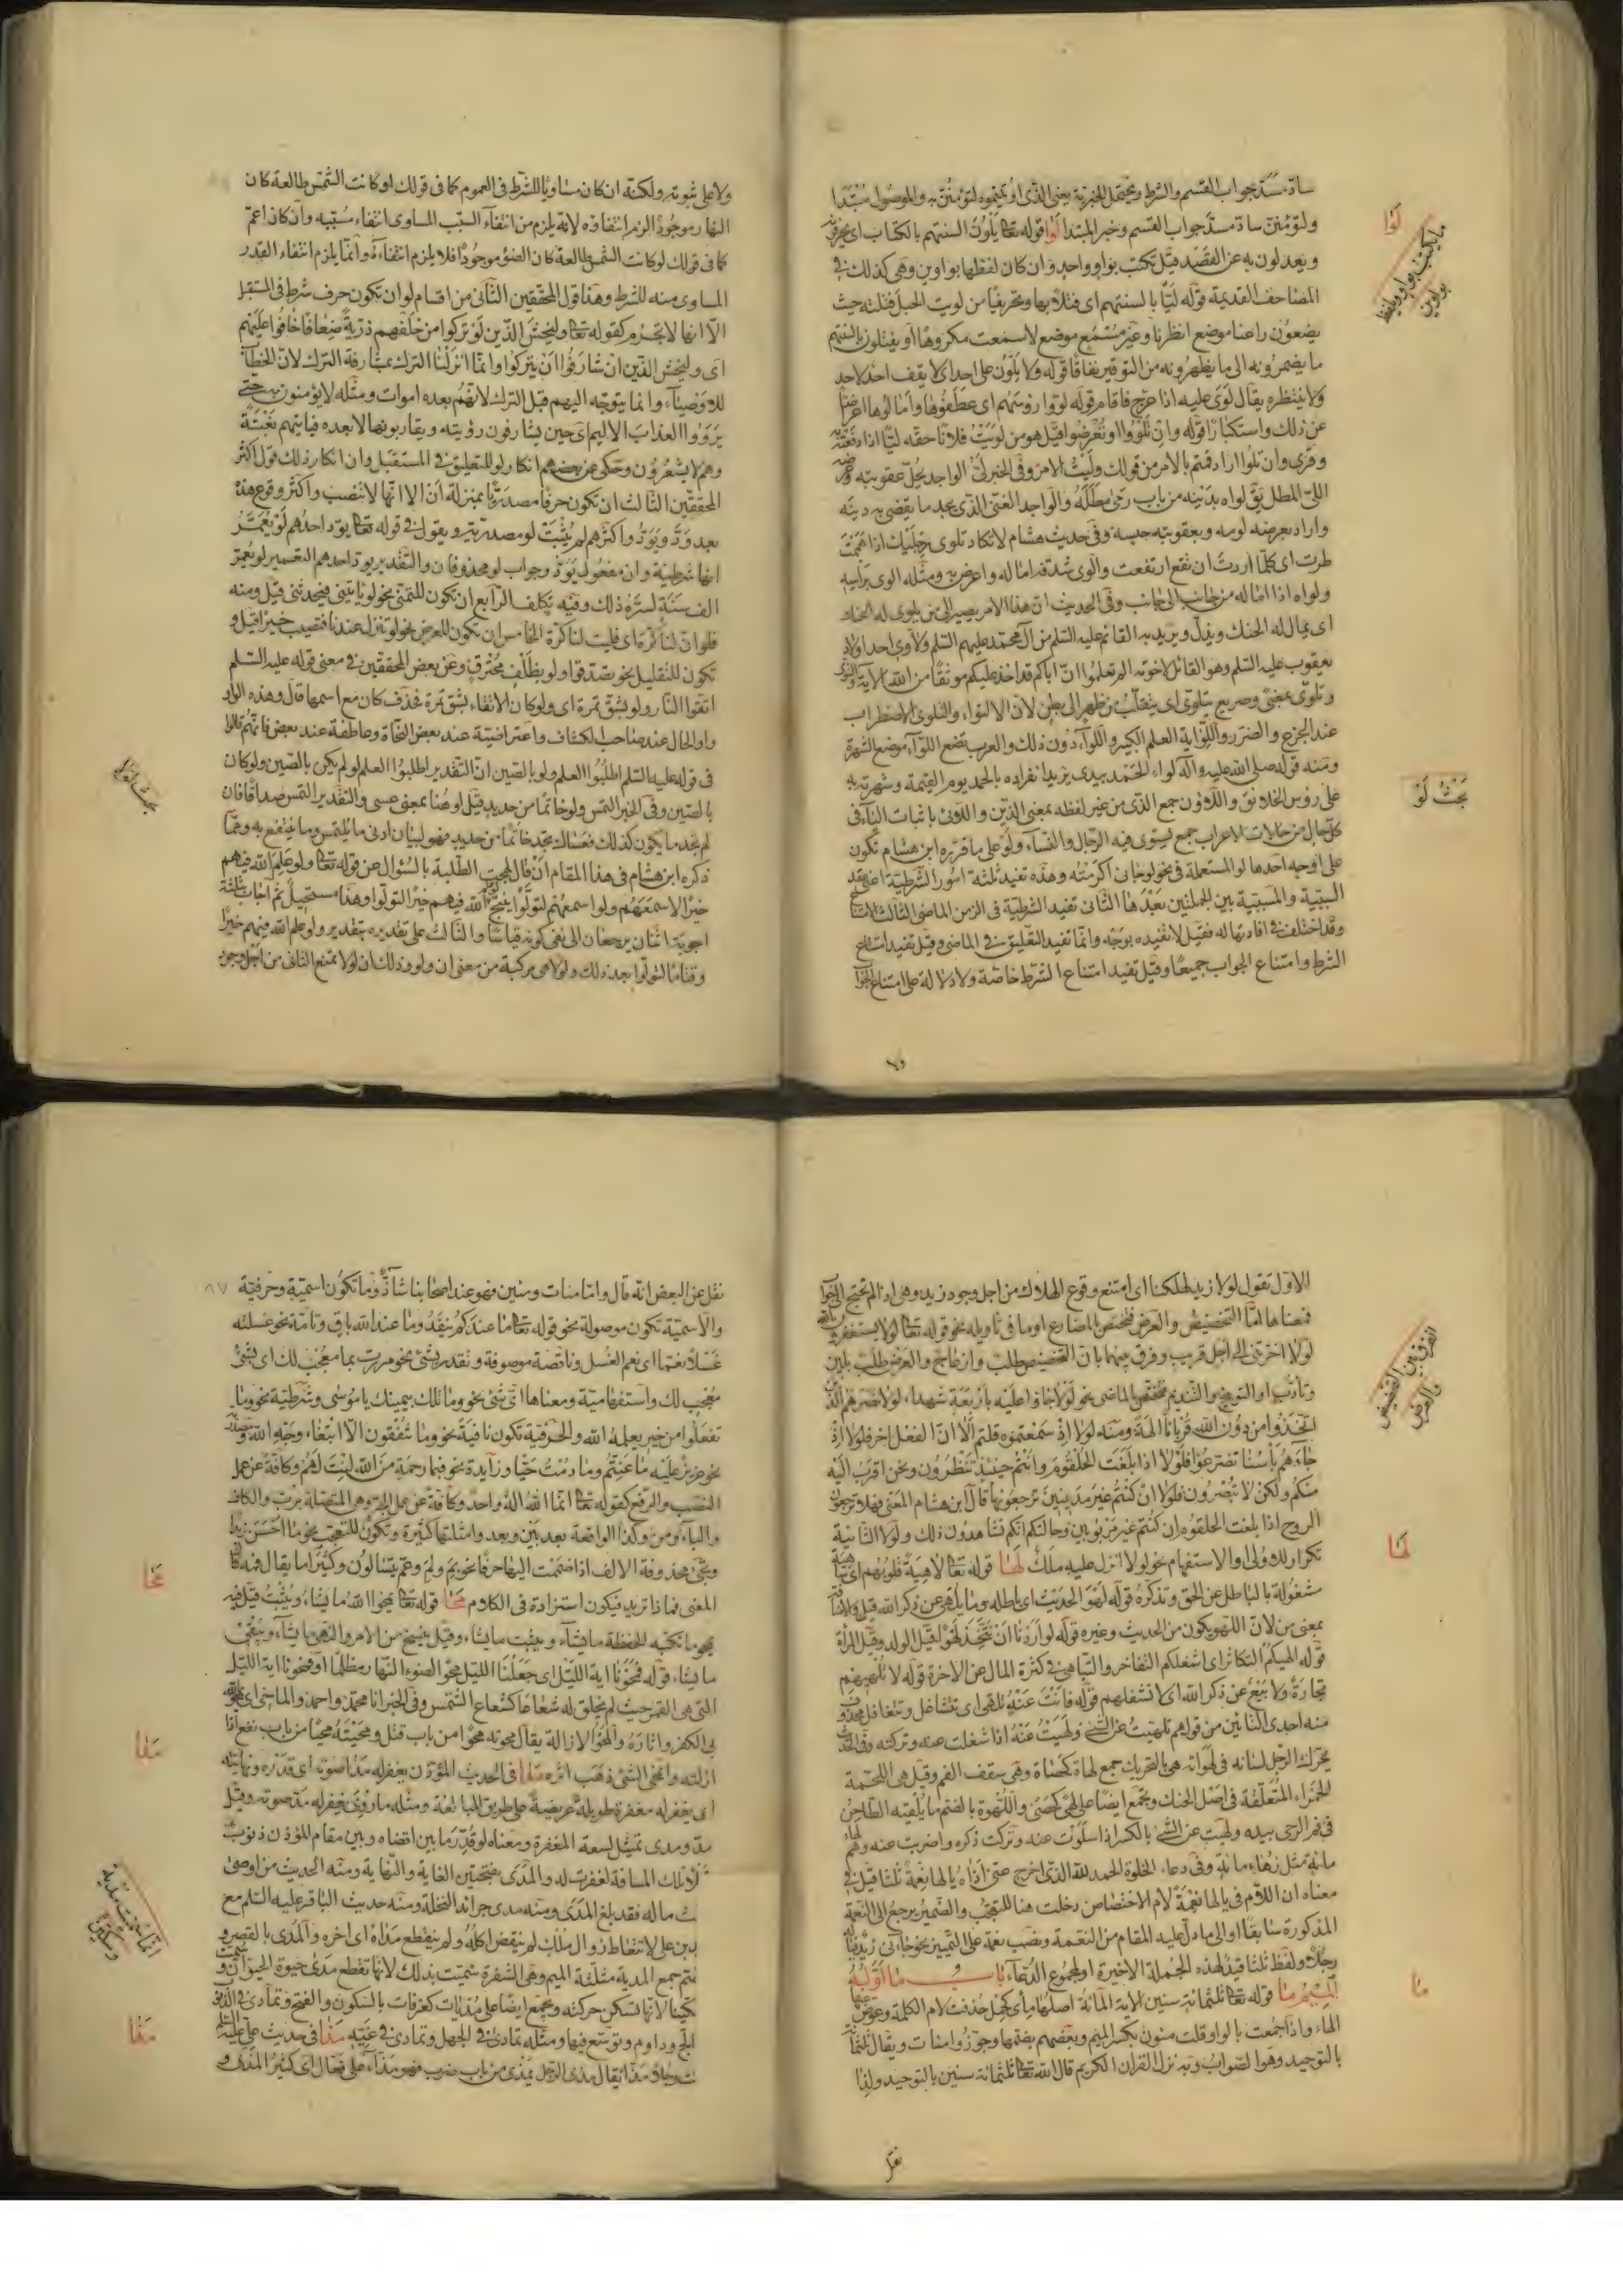 سادّ مسدّ جواب القسم والشرط ويحتمل الخبرية بمعنى الذى اوتيتموه لتؤمننّ به والموصول مبتدا
ولتؤمننّ سادّ مسدّ جواب القسم وخبر المبتدا لوا قوله تعالى يلوون السنتهم بالكتاب اى يحرفونه
ويعدلون به عن القصد قيل تكتب بواو واحدة وان كان لفظها بواوين وهى كذلك فى
المصاحف القديمة قوله ليّا بالسنتهم اى فتلا بها وتحريفا من لويت الحبل فتلته حيث
يضعون راعنا موضع انظرنا وغير مسمع موضع لاسمعت مكروها او يفتلون بالسنتهم
ما يضمرونه الى ما يظهرونه من التوقير نفاقا قوله ولا يلون على احد اى لا يقف احد لاحد
ولا ينتظره يقال لوى عليه اذا عرج فاقام قوله لووا رؤسهم اى عطفوها وامالوها اعراضا
عن ذلك واستكبارا قوله وان تلووا او تعرضوا قيل هو من لويت فلانا حقه ليّا اذا دفعته
وقرئ وان تلوا اراد قمتم بالامر من قولك وليت الامر وفى الخبر لىّ الواجد يحلّ عقوبته وعرضه
اللىّ المطل يق لواه بدينه من باب رمى مطله والواجد الغنى الذى يجد ما يقضى به دينه
واراد بعرضه لومه وبعقوبته حبسه وفى حديث هشام لا تكاد تلوى رجليك اذا هممت
طرت اى كلما اردت ان تقع ارتفعت والوى شدقه اماله واعرض به ومثله الوى براسه
ولواه اذا اماله من جانب الى جانب وفى الحديث ان هذا الامر يصير الى من يلوى له الحنك
اى يمال له الحنك ويذلّ ويريد به القائم عليه السلم من آل محمد عليهم السلم ولاوى احد اولاد
يعقوب عليه السلم وهو القائل لاخوته الم تعلموا انّ اباكم قد اخذ عليكم موثقا من الله الاية
وتلوّى بمعنى وصريع يتلوى اى يتقلّب من ظهر الى بطن لان الالتواء والتلوى الاضطراب
عند الجزع والضرر واللواية العلم الكبير واللواء دون ذلك والعرب تضع اللواء موضع الشهرة
ومنه قوله صلى الله عليه وآله لواء الحمد بيدى يريد انفراده بالحمد يوم القيمة وشهرته به
على رؤس الخلائق واللاؤن جمع الذى من غير لفظه بمعنى الذين واللائى باثبات الياء فى
كلّ حال من حالات الاعراب جمع يستوى فيه الرجال والنساء ولو على ما قرره ابن هشام تكون
على اوجه احدها لو المستعملة فى نحو لو جاءنى اكرمته وهذه تفيد ثلثة امور الشرطية اعنى عقد
السببية والمسببية بين الجملتين بعدها الثانى تفيد الشرطية فى الزمن الماضى الثالث الامتناع
وقد اختلف فى افادتها له فقيل لا تفيده بوجه وانما تفيد التعليق فى الماضى وقيل تفيد امتناع
الشرط وامتناع الجواب جميعا وقيل تفيد امتناع الشرط خاصة ولا دلالة على امتناع الجواب
لوا
ما يكتب بواو ويلفظ
بواوين
بحث لو
ولا على ثبوته ولكنه ان كان مساويا للشرط فى العموم كما فى قولك لو كانت الشمس طالعة كان
النهار موجودا لزم انتفاؤه لانه يلزم من انتفاء السبب المساوى انتفاء مسببه وان كان اعمّ
كما فى قولك لو كانت الشمس طالعة كان الضوء موجودا فلا يلزم انتفاءه وانما يلزم انتفاء القدر
المساوى منه للشرط وهذا قول المحققين الثانى من اقسام لو ان تكون حرف شرط فى المستقبل
الّا انها لا تجزم كقوله تعالى وليخش الذين لو تركوا من خلفهم ذرية ضعافا خافوا عليهم
اى وليخش الذين ان شارفوا ان يتركوا وانما اوّلنا الترك بمشارفة الترك لان الخطاب
للاوصياء وانما يتوجه اليهم قبل الترك لانهم بعده اموات ومثله لا يؤمنون به حتى
يروا العذاب الاليم اى حين يشارفون رؤيته ويقاربونها لا بعده فياتيهم بغتة
وهم لا يشعرون وحكى عن بعضهم انكار لو للتعليق فى المستقبل وان انكار ذلك قول اكثر
المحققين الثالث ان تكون حرفا مصدريا بمنزلة ان الا انها لا تنصب واكثر وقوع هذه
بعد ودّ ويودّ واكثرهم لم يثبت لو مصدرية ويقول فى قوله تعالى يودّ احدهم لو يعمّر
انها شرطية وان مفعول يودّ وجواب لو محذوفان والتقدير يودّ احدهم التعمير لو يعمّر
الف سنة لسرّه ذلك وفيه تكلف الرابع ان تكون للتمنى نحو لو تاتينى فتحدثنى قيل ومنه
فلو ان لنا كرّة اى فليت لنا كرّة الخامس ان تكون للعرض نحو لو تنزل عندنا فتصيب خيرا قيل و
تكون للتقليل نحو تصدقوا ولو بظلف محرق وعن بعض المحققين فى معنى قوله عليه السلم
اتقوا النار ولو بشقّ تمرة اى ولو كان الاتقاء بشقّ تمرة فحذف كان مع اسمها قال وهذه الواو
واو الحال عند صاحب الكشاف واعتراضية عند بعض النحاة وعاطفة عند بعض فانهم قالوا
فى قوله عليه السلم اطلبوا العلم ولو بالصين انّ التقدير اطلبوا العلم لو لم يكن بالصين ولو كان
بالصين وفى الخبر التمس ولو خاتما من حديد قيل لو هنا بمعنى عسى والتقدير التمس صداقا فان
لم تجد ما يكون كذلك فعساك تجد خاتما من حديد فهو لبيان ادنى ما يلتمس وما ينتفع به وممّا
ذكره ابن هشام فى هذا المقام ان قال لهجت الطلبة بالسؤال عن قوله تعالى ولو علم الله فيهم
خيرا لاسمعهم ولو اسمعهم لتولّوا ينتج لو علم الله فيهم خيرا لتولوا وهذا مستحيل ثم اجاب بثلثة
اجوبة اثنان يرجعان الى نفى كونه قياسا والثالث على تقديره بتقدير ولو علم الله فيهم خيرا
وقتا ما لتولوا بعد ذلك ولولا هى مركبة من معنى ان ولو وذلك ان لولا تمنع الثانى من اجل وجود
بحث لولا
الاوّل تقول لولا زيد لهلكنا اى امتنع وقوع الهلاك من اجل وجود زيد وهى اذا لم تحتج الى جواب
فمعناها امّا التحضيض والعرض فتختص بالمضارع او ما فى تاويله نحو قوله تعالى لولا يستغفرون الله
لولا اخرتنى الى اجل قريب وفرق بينهما بانّ التحضيض طلب بحثّ وازعاج والعرض طلب بلين
وتأدّب او التوبيخ والتنديم فتختص بالماضى نحو لولا جاؤا عليه باربعة شهداء لولا نصرهم الذين
اتخذوا من دون الله قربانا الهة ومنه لولا اذ سمعتموه قلتم الّا انّ الفعل اخر فلولا اذ
جاءهم بأسنا تضرّعوا فلولا اذا بلغت الحلقوم وانتم حينئذ تنظرون ونحن اقرب اليه
منكم ولكن لا تبصرون فلولا ان كنتم غير مدينين ترجعونها قال ابن هشام المعنى فهلا ترجعون
الروح اذا بلغت الحلقوم ان كنتم غير مربوبين وحالتكم انكم تشاهدون ذلك ولولا الثانية
تكرار للاولى او الاستفهام نحو لولا انزل عليه ملك لها قوله تعالى لاهية قلوبهم اى ساهية
مشغولة بالباطل عن الحق وتذكره قوله لهو الحديث اى باطله وما يلهى عن ذكر الله قيل والاضافة
بمعنى من لان اللهو يكون من الحديث وغيره قوله لو اردنا ان نتخذ لهوا قيل الولد وقيل المرأة
قوله الهيكم التكاثر اى اشغلكم التفاخر والتباهى فى كثرة المال عن الاخرة قوله لا تلهيهم
تجارة ولا بيع عن ذكر الله اى لا تشغلهم قوله فانت عنه تلهى اى تتشاغل وتتغافل
منه احدى التائين من قولهم تلهيت عن الشئ ولهيت عنه اذا شغلت عنه وتركته وفى الحديث
يحرّك الرجل لسانه فى لهواته هى بالتحريك جمع لهاة كحصاة وهى سقف الفم وقيل هى اللحمة
الحمراء المتعلقة فى اصل الحنك وتجمع ايضا على لهى كحصى واللهوة بالضم ما يلقيه الطاحن
فى فم الرحى بيده ولهيت عن الشئ بالكسر اذا سلوت عنه وتركت ذكره واضربت عنه ولهاء
مائة مثل زهاء مائة وفى دعاء الخلوة الحمد لله الذى اخرج عنى اذاه يا لها نعمة ثلثا قيل فى
معناه ان اللام فى يا لها نعمة لام الاختصاص دخلت هنا للتعجب والضمير يرجع الى النعمة
المذكورة سابقا او الى ما دل عليه المقام من النعمة ونصب نعمة على التمييز نحو جاءنى زيد
رجلا ولفظ ثلثا قيد لهذه الجملة الاخيرة او لمجموع الدعاء باب ما اوّله
الميم ما قوله تعالى ثلثمائة سنين الاية المائة اصلها مأى كحمل حذفت لام الكلمة وعوض عنها
الهاء واذا جمعت بالواو قلت مئون بكسر الميم وبعضهم يضمها وجوّزوا مئات ويقال ثلثمائة
بالتوحيد وهو الصواب وبه نزل القران الكريم قال الله تعالى ثلثمائة سنين بالتوحيد ولذا
الفرق بين التحضيض
والعرض
لها
ما
نقل
نقل عن البعض انه قال وامّا مئات ومئين فهو عند اصحابنا شاذّ وما تكون اسمية وحرفية
والاسمية تكون موصولة نحو قوله تعالى ما عندكم ينفد وما عند الله باق وتامة نحو غسلته
غسلا نعمّا اى نعم الغسل وناقصة موصوفة وتقدر بشئ نحو مررت بما معجب لك اى بشئ
معجب لك واستفهامية ومعناها اىّ شئ نحو وما تلك بيمينك يا موسى وشرطية نحو وما
تفعلوا من خير يعلمه الله والحرفية تكون نافية نحو وما تنفقون الا ابتغاء وجه الله
نحو عزيز عليه ما عنتم وما دمت حيّا وزايدة نحو فبما رحمة من الله لنت لهم وكافة عن عمل
النصب والرفع كقوله تعالى انّما الله اله واحد وكافة عن عمل الجرّ وهى المتصلة بربّ والكاف
والباء ومن وكذا الواقعة بعد بين وبعد وامثلتها كثيرة وتكون للتعجب نحو ما احسن زيدا
وتجئ محذوفة الالف اذا ضممت اليها حرفا نحو بم ولم وعمّ يتسائلون وكثيرا ما يقال
المعنى فماذا تريد فيكون استزادة فى الكلام محا قوله تعالى يمحوا الله ما يشاء ويثبت قيل فيه
يمحو ما تكتبه الحفظة ما يشاء ويثبت ما يشاء وقيل ينسخ من الامر والنهى ما يشاء ويبقى
ما يشاء قوله فمحونا اية الليل اى جعلنا الليل محو الضوء النهار مظلما او فمحونا اية الليل
التى هى القمر حيث لم يخلق له شعاعا كشعاع الشمس وفى الخبر انا محمد واحمد والماحى اى يمحو الله
بى الكفر واثاره والمحو الازالة يقال محوته محوا من باب قتل ومحيته محيا من باب نفع اذا
ازلته وانمحى الشئ ذهب اثره مدا فى الحديث المؤذن يغفر له مدا صوته اى قدره ونهايته
اى يغفر له مغفرة طويلة عريضة على طريق المبالغة ومثله ما روى يغفر له مدّ صوته وقيل
مدّ ومدى تمثيل لسعة المغفرة ومعناه لو قدّر ما بين اقصاه وبين مقام المؤذن ذنوب
تملأ تلك المسافة لغفرت له والمدى بفتحتين الغاية والنهاية ومنه الحديث من اوصى
بثلث ماله فقد بلغ المدى ومنه مدى جرائد النخلة ومنه حديث الباقر عليه السلم مع
زيد بن على لا تتعاط زوال ملك لم ينقض اكله ولم ينقطع مداه اى اخره والمدى بالقصر و
الضم جمع المدية مثلثة الميم وهى الشفرة سميت بذلك لانها تقطع مدى حيوة الحيوان و
سكينا لانها تسكن حركته وتجمع ايضا على مديات كغرفات بالسكون والفتح وتمادى فى الامر
لجّ وداوم وتوسّع فيها ومثله تمادى فى الجهل وتمادى فى غيّه مذا فى حديث على عليه السلم
كنت رجلا مذّاء يقال مذى الرجل يمذى من باب ضرب فهو مذّاء على فعّال اى كثير المذى و
٨٧
محا
مدا
انما سميت مدية
وسكينا
مذا